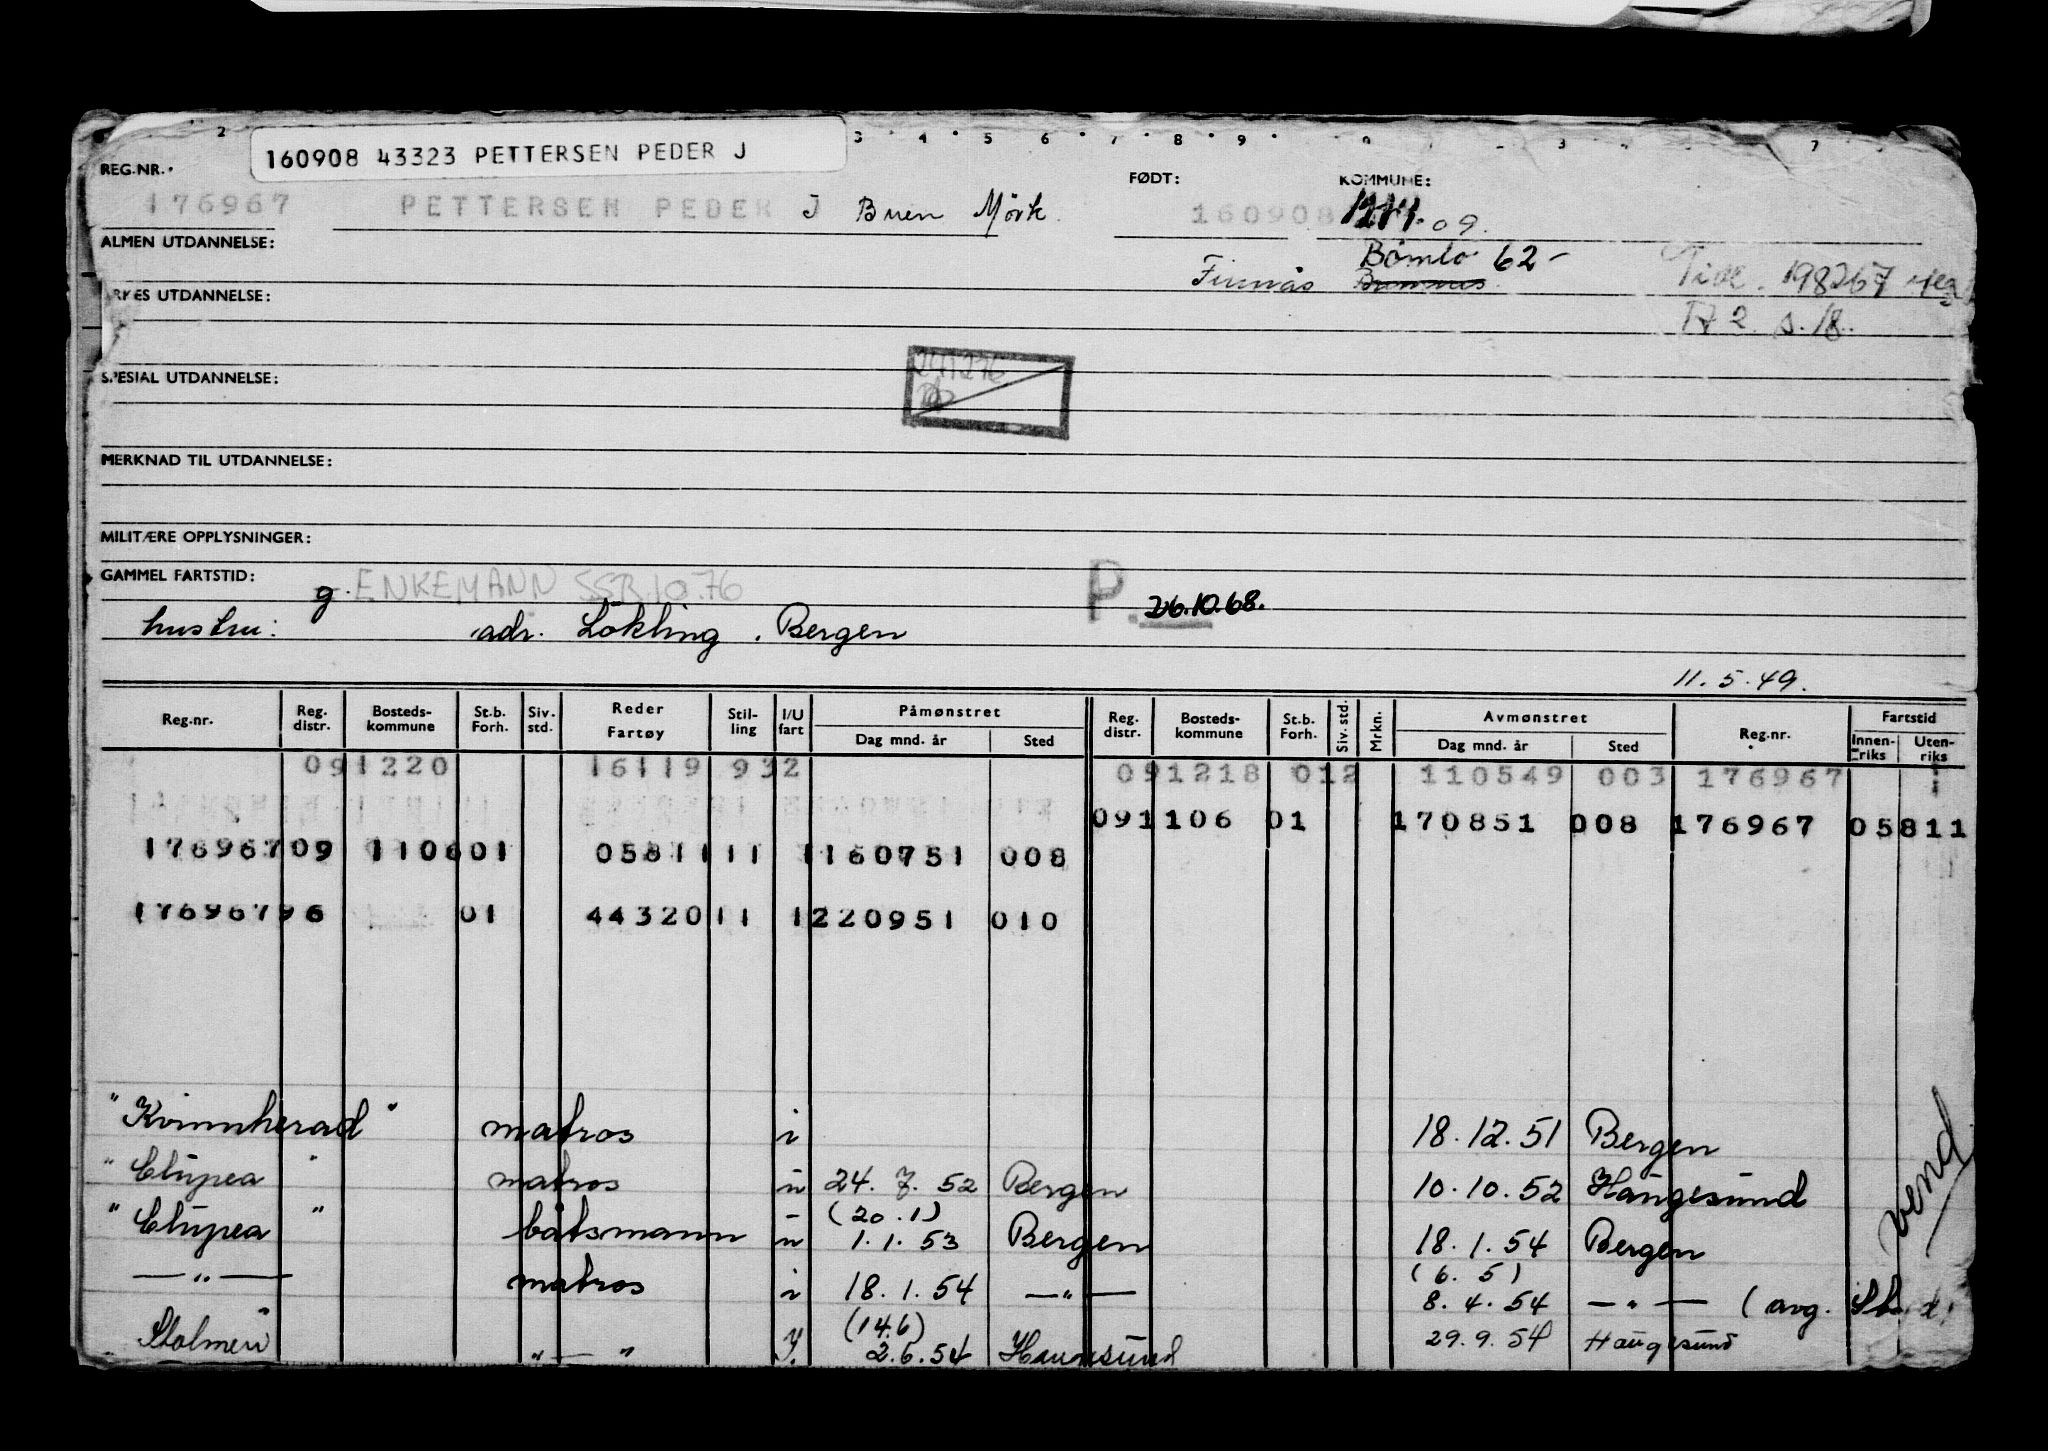 160908 43323 PETTERSEN PEDER J
2 3 4 5 6 7 8 9 3 7
REG.NR. FØDT: KOMMUNE:
176967 PETTERSEN PEDER J Buen Mörk 160908 09.
ALMEN UTDANNELSE: Bömlo 62-
Finnås
YRKES UTDANNELSE: 198267
s. 18.
SPESIAL UTDANNELSE:
MERKNAD TIL UTDANNELSE:
MILITÆRE OPPLYSNINGER:
GAMMEL FARTSTID: g. ENKEMANN SSB.10.76 P. 26.10.68.
hustru: adr. Lökling, Bergen
11.5.49.
Reg.nr. Reg. distr. Bosteds- kommune St.b. Forh. Siv. std. Reder Fartøy Stil- ling I/U fart Påmønstret Dag mnd. år Sted Reg. distr. Bosteds- kommune St.b. Forh. Siv. std. Mrkn. Avmønstret Dag mnd. år Sted Reg.nr. Fartstid Innen- riks Uten- riks
091220 16119 932 091218 012 110549 003 176967
091106 01 170851 008 176967 05811
17696709 110601 0581111 1160751 008
17696796 01 4432011 1220951 010
"Kvinnherad" matros i 18.12.51 Bergen
"Clupea" matros u 24.7.52 Bergen 10.10.52 Haugesund
"Clupea" båtsmann u (20.1) 1.1.53 Bergen 18.1.54 Bergen
—"— matros i 18.1.54 —"— (6.5) 8.4.54 —"— (avg.
Stolmen "—" (14.6) 2.6.54 Haugesund 29.9.54 Haugesund
vend